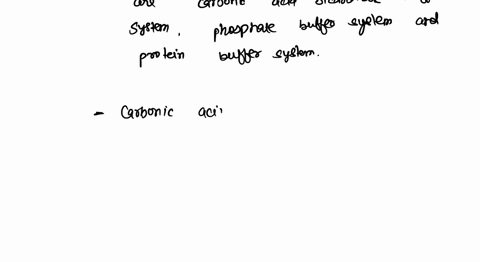 are carbonic acid
system, phosphate buffer system and
protein buffer system.
- Carbonic aci